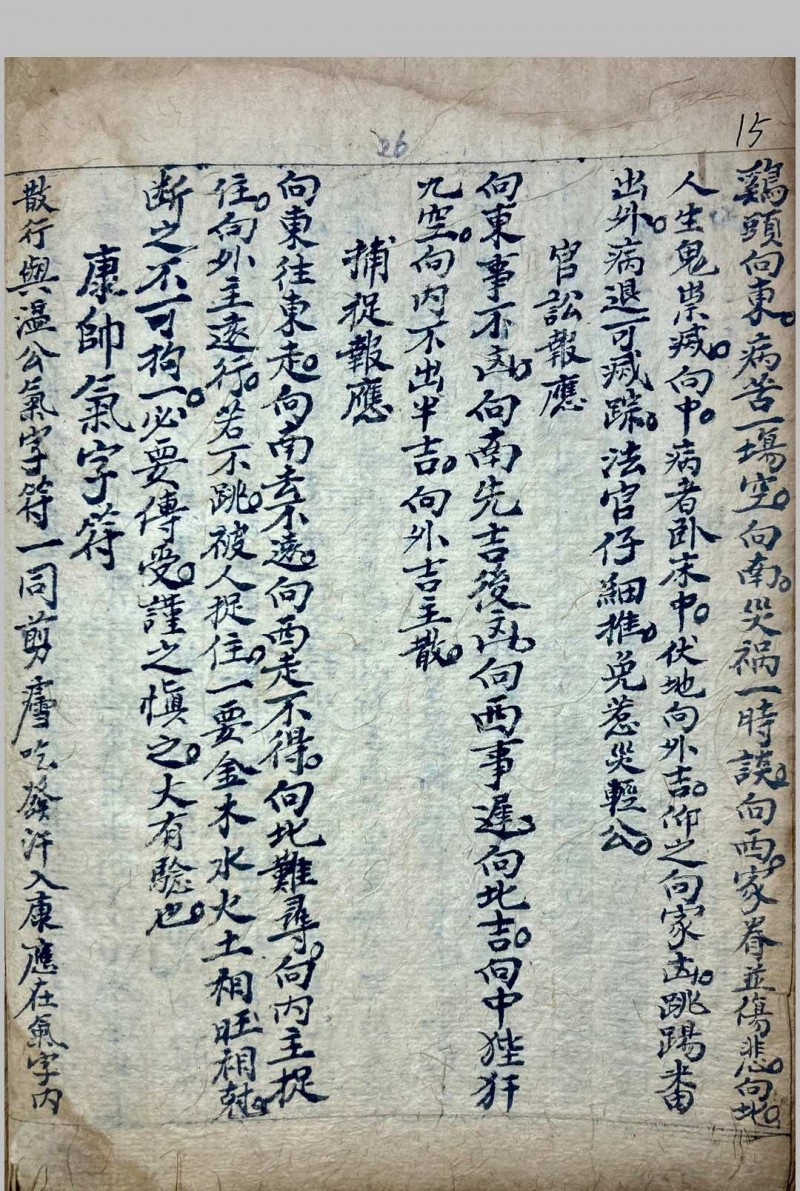 15
26
鷄頭向東。病苦一場空。向南。災禍一時談。向西。家眷並傷悲。向北。
人生鬼祟减。向中。病者卧床中。伏地向外吉。仰之向家凶。跳踢番
出外。病退可减踪。法官仔細推。免惹災輕公。
官訟報應
向東事不凶。向南先吉後凶。向西事遲。向北吉。向中狴犴
九空。向内不出半吉。向外吉主散。
捕捉報應
向東往東走。向南去不遠。向西走不得。向北難尋。向内主捉
住。向外主遠行。若不跳。被人捉住。一要金木水火土相旺相尅。
断之不可拘一。必要傳受。謹之慎之。大有驗也。
康帥氣字符
散行與温公氣字符一同剪瘧吃發汗入康應在氣字内